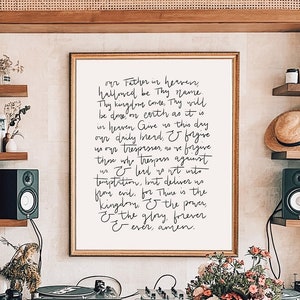 our Father in heaven,
hallowed be Thy name.
Thy kingdom come, Thy will
be done, on earth as it is
in heaven. Give us this day
our daily bread, & forgive
us our trespasses, as we forgive
those who trespass against
us & lead us not into
temptation, but deliver us
from evil, for Thine is the
kingdom, & the power,
& the glory, forever
& ever, amen.